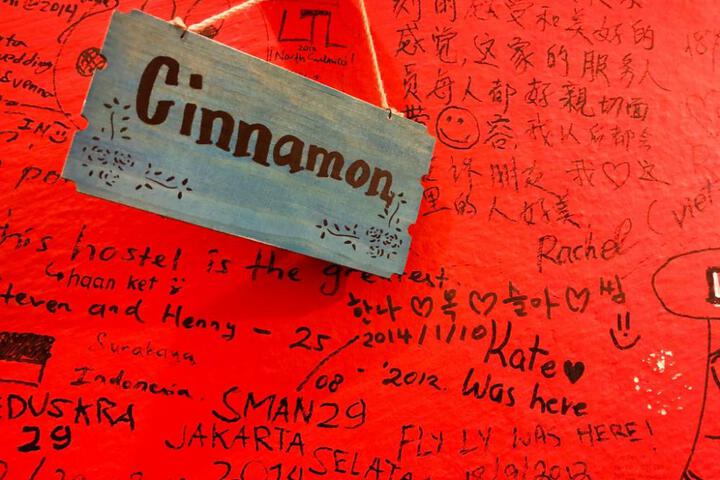 @2014
LTL
2012
North Sumatra!
Cinnamon
的感受和美好的
感觉,这家的服务人
员每人都好親切面
带 容,我从后都会
我♡这
里的人好美
Rachel
(viet
this hostel is the greatest
Ghaan ket
Steven and Henny - 25/08-'2012.
한나♡목♡솔아♡씽
2014/1/10
Surabaya
Indonesia.
Kate♥
Was here
EDUSKRA
29
SMAN29
JAKARTA
2014
SELATA
FLY LY WAS HERE!
18/9/2012